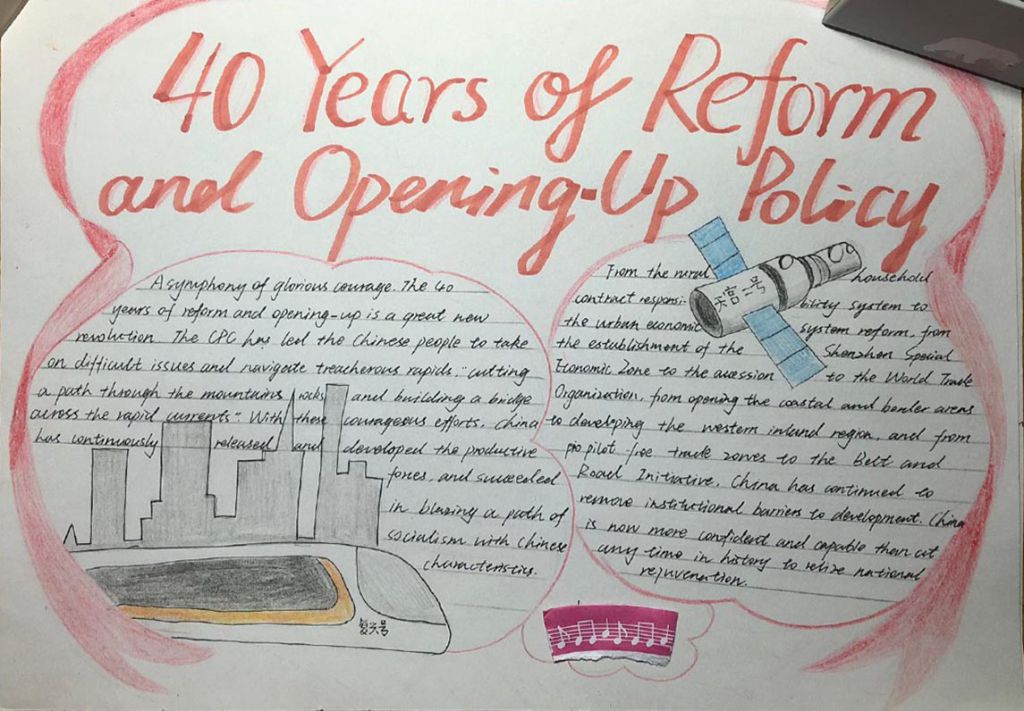 40 Years of Reform
and Opening-Up Policy
A symphony of glorious courage. The 40
years of reform and opening-up is a great new
revolution. The CPC has led the Chinese people to take
on difficult issues and navigate treacherous rapids, "cutting
a path through the mountains rocks and building a bridge
across the rapid currents". With these courageous efforts, China
has continuously released and developed the productive
forces, and succeeded
in blazing a path of
socialism with Chinese
characteristics.
复兴号
From the rural household
contract responsi- bility system to
the urban economic system reform, from
the establishment of the Shenzhen Special
Economic Zone to the accession to the World Trade
Organization, from opening the coastal and border areas
to developing the western inland region, and from
pilot free trade zones to the Belt and
Road Initiative, China has continued to
remove institutional barriers to development. China
is now more confident and capable than at
any time in history to relize national
rejuvenation.
天宫一号